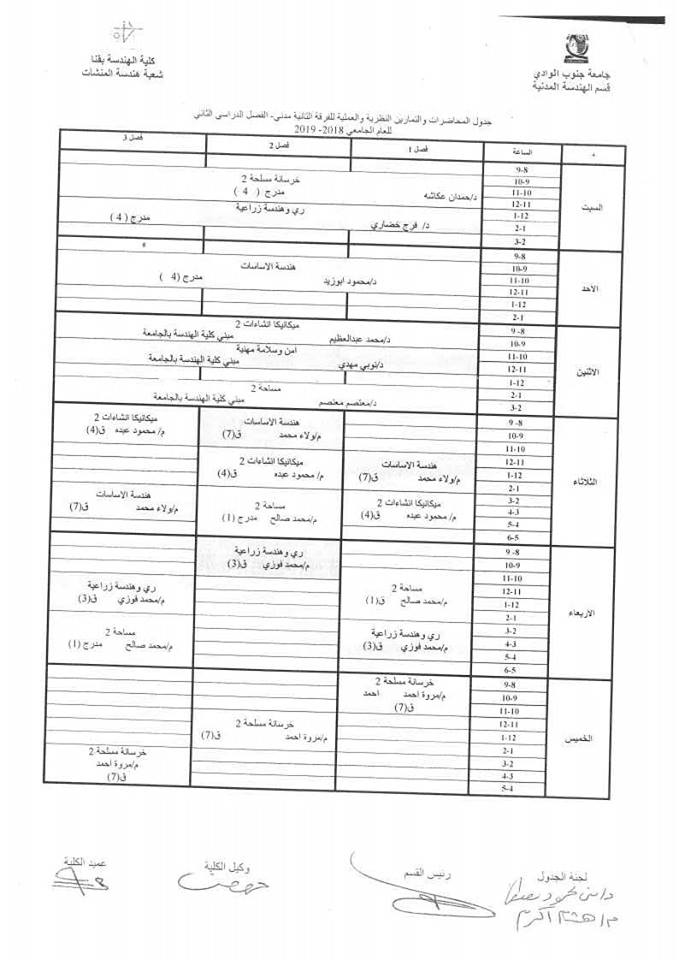 جامعة جنوب الوادي
قسم الهندسة المدنية
كلية الهندسة بقنا
شعبة هندسة المنشآت
جدول المحاضرات والتمارين النظرية والعملية للفرقة الثانية مدني- الفصل الدراسي الثاني
للعام الجامعي 2018- 2019
الساعة فصل 1 فصل 2 فصل 3
السبت
9-8
10-9
11-10
12-11
1-12
2-1
3-2
خرسانة مسلحة 2
د/حمدان عكاشه مدرج ( 4 )
ري وهندسة زراعية
د/ فرج خضاري مدرج ( 4 )
الأحد
9-8
10-9
11-10
12-11
1-12
2-1
هندسة الاساسات
د/محمود ابوزيد مدرج ( 4 )
الاثنين
9-8
10-9
11-10
12-11
1-12
2-1
3-2
ميكانيكا انشاءات 2
د/محمد عبدالعظيم مبني كلية الهندسة بالجامعة
امن وسلامة مهنية
د/نوبي مهدي مبني كلية الهندسة بالجامعة
مساحة 2
د/معتصم معتصم مبني كلية الهندسة بالجامعة
الثلاثاء
9-8
10-9
11-10
12-11
1-12
2-1
3-2
4-3
5-4
6-5
هندسة الاساسات
م/ولاء محمد ق(7)
ميكانيكا انشاءات 2
م/ محمود عبده ق(4)
هندسة الاساسات
م/ولاء محمد ق(7)
ميكانيكا انشاءات 2
م/ محمود عبده ق(4)
مساحة 2
م/محمد صالح مدرج (1)
ميكانيكا انشاءات 2
م/ محمود عبده ق(4)
هندسة الاساسات
م/ولاء محمد ق(7)
الاربعاء
9-8
10-9
11-10
12-11
1-12
2-1
3-2
4-3
5-4
6-5
مساحة 2
م/محمد صالح ق(1)
ري وهندسة زراعية
م/محمد فوزي ق(3)
ري وهندسة زراعية
م/محمد فوزي ق(3)
ري وهندسة زراعية
م/محمد فوزي ق(3)
مساحة 2
م/محمد صالح مدرج (1)
الخميس
9-8
10-9
11-10
12-11
1-12
2-1
3-2
4-3
5-4
خرسانة مسلحة 2
م/مروة احمد احمد
ق(7)
خرسانة مسلحة 2
م/مروة احمد ق(7)
خرسانة مسلحة 2
م/مروة احمد
ق(7)
لجنة الجدول رئيس القسم وكيل الكلية عميد الكلية